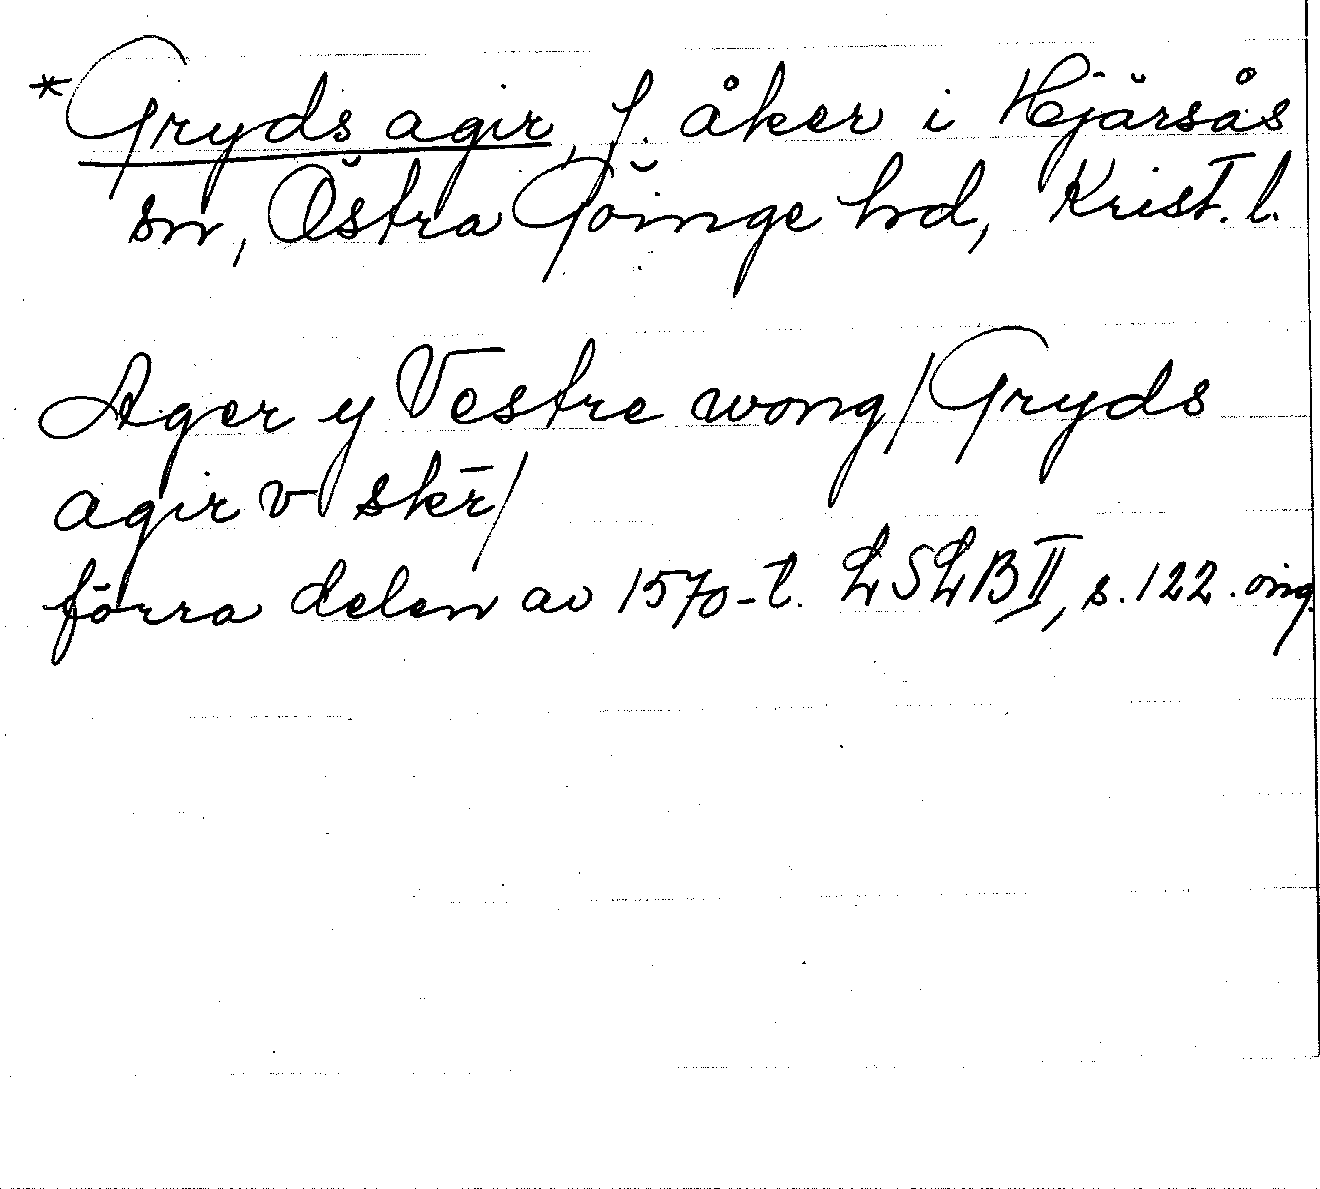 *Gryds agir, f. åker i Hjärsås
sn, Östra Göinge hd, Krist. l.
Ager y Vestre wong/Gryds
agir v skē/
förra delen av 1570-t. LSLB II, s. 122. orig.